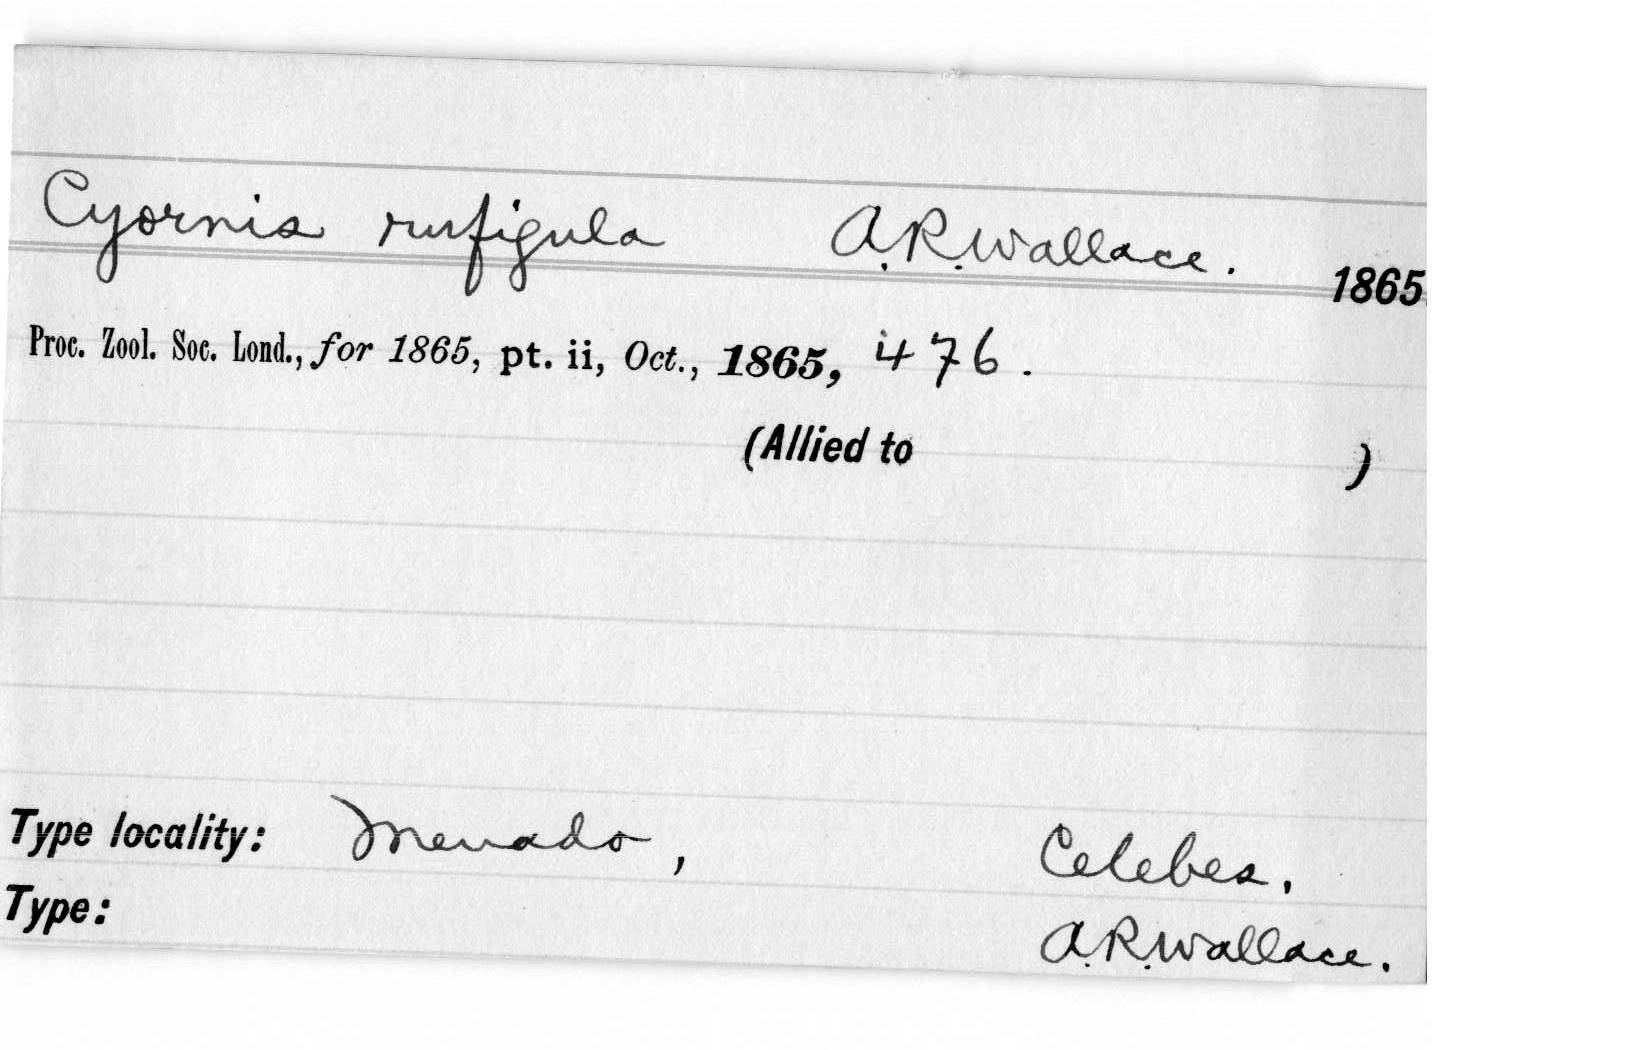 Cyornis rufigula A.R.Wallace. 1865
Proc. Zool. Soc. Lond., for 1865, pt. ii, Oct., 1865, 476.
(Allied to )
Type locality: Menado, Celebes.
Type: A.R.Wallace.